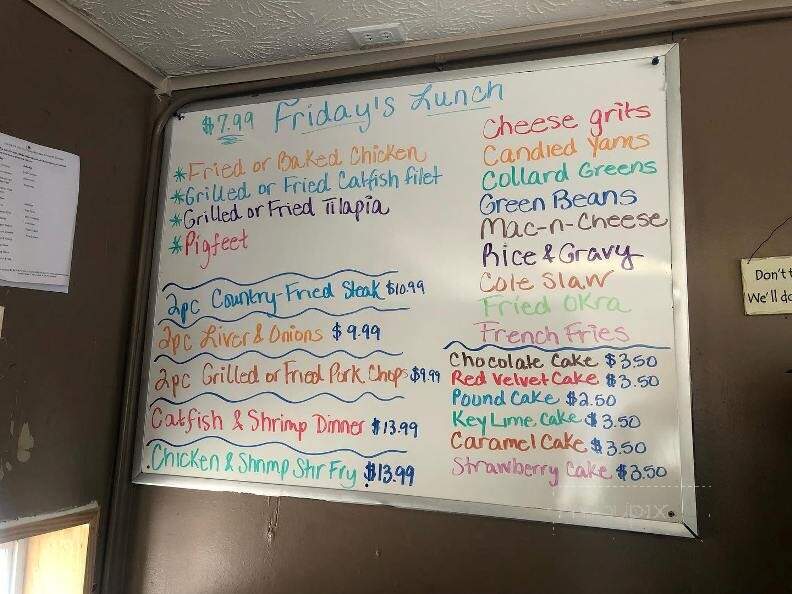 $7.99 Friday's Lunch
*Fried or Baked Chicken
*Grilled or Fried Catfish filet
*Grilled or Fried Tilapia
*Pigfeet
2pc Country-Fried Steak $10.99
2pc Liver & Onions $9.99
2pc Grilled or Fried Pork Chops $9.99
Catfish & Shrimp Dinner $13.99
Chicken & Shrimp Stir Fry $13.99
Cheese grits
Candied Yams
Collard Greens
Green Beans
Mac-n-Cheese
Rice & Gravy
Cole Slaw
Fried Okra
French Fries
Chocolate Cake $3.50
Red Velvet Cake $3.50
Pound Cake $2.50
Key Lime Cake $3.50
Caramel Cake $3.50
Strawberry Cake $3.50
Don't
We'll do